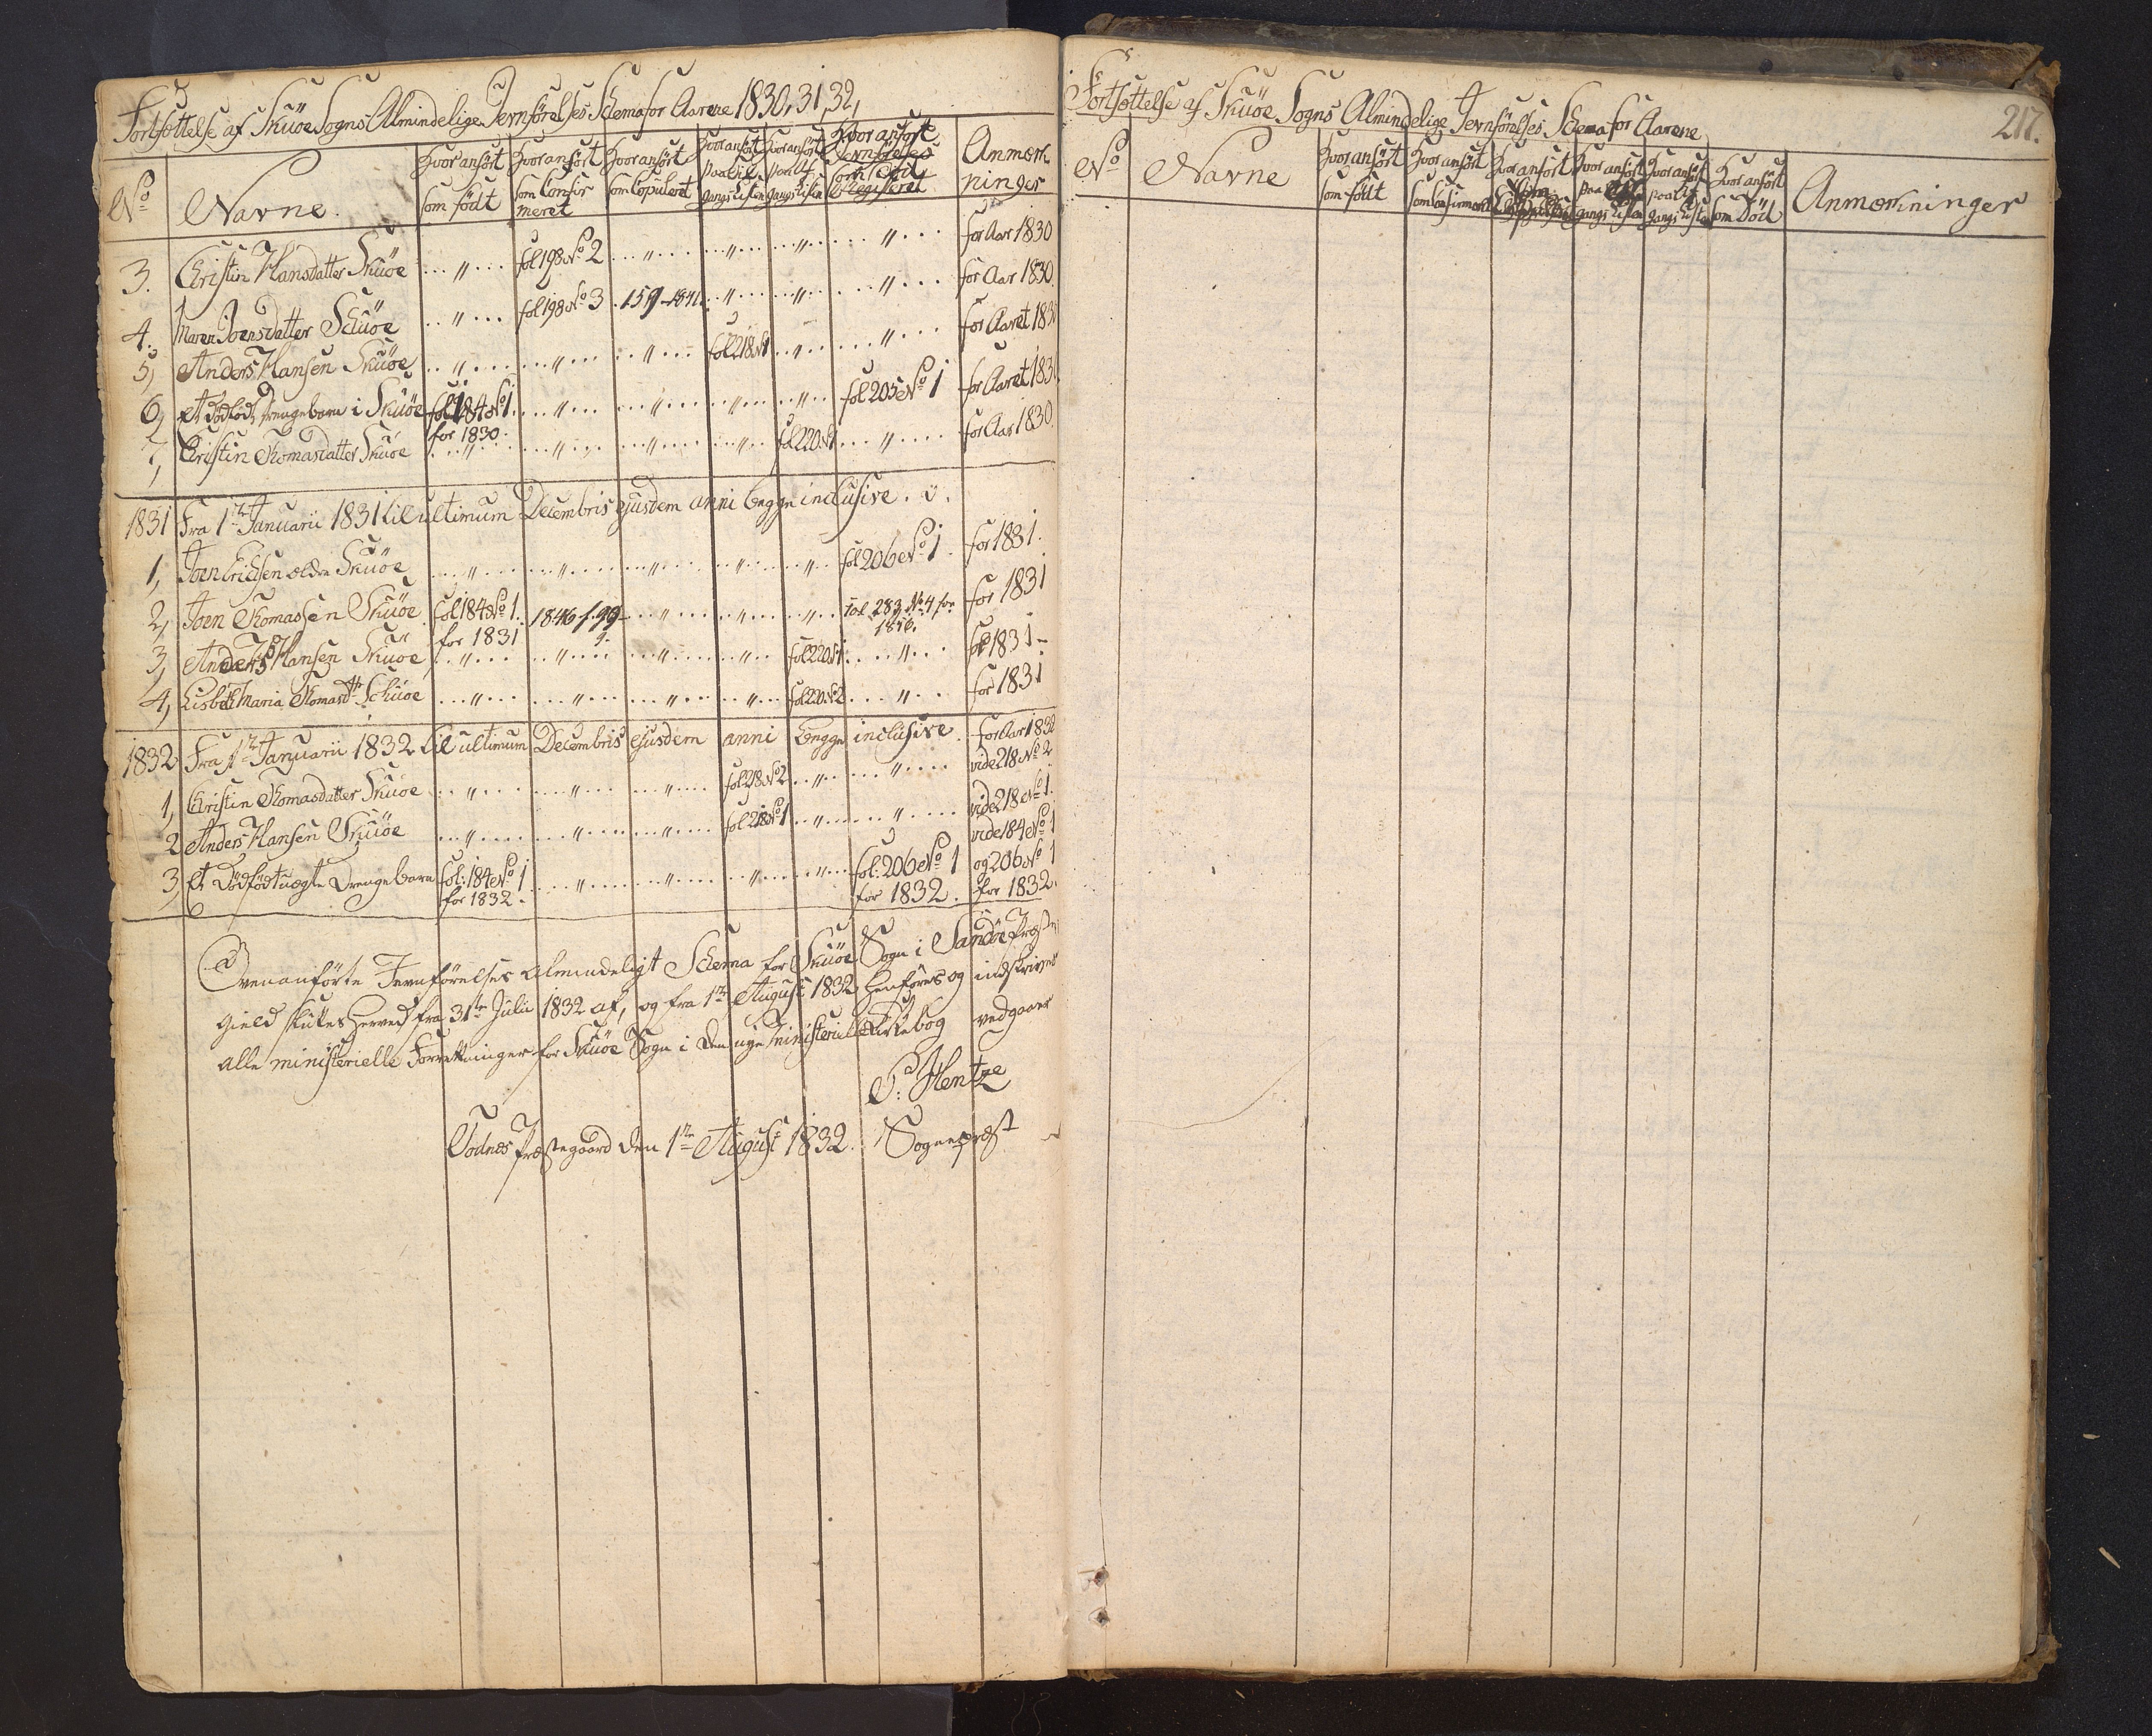 Fortsættelse af Skuöe Sogns Almindelige Jevnförelses Schema for Aarene 1830, 31, 32,
No Navne. Hvor anfört som födt Hvor anfört som Confirmeret Hvor anfört som Copuleret Hvor anfört paa Tilgangs Listen Hvor anfört paa Afgangs Listen Hvor anfört som Död Jevnförelses Registeret Anmærkninger
3. Christin Hansdatter Skuöe ...〃... fol 198 No 2 ...〃... ...〃... ...〃... ...〃... for Aar 1830
4. Maren Joensdatter Schuöe ...〃... fol 198 No 3 . 159 - 1841. ...〃... ...〃... ...〃... for Aar 1830.
5, Anders Hansen Skuöe ...〃... ...〃... ...〃... fol 218 No 1 ...〃... ...〃... for Aaret 1830
6, et dödfödt drengebarn i Skuöe fol 184 No 1. ...〃... ...〃... ...〃... ...〃... fol 205 No 1 for Aaret 1830
for 1830.
7, Christin Thomasdatter Skuöe ...〃... ...〃... ...〃... ...〃... fol 220. No 1 ...〃... for Aar 1830.
1831 Fra 1te Januarii 1831 til ultimum Decembris ejusdem anni begge inclusive.
1, Joen Erichsen ældre Skuöe ...〃... ...〃... ...〃... ...〃... ...〃... fol 206 No 1. for 1831.
2, Joen Thomassen Skuöe. fol 184 No 1. 1846 f. 99 ...〃... ...〃... ...〃... fol 283 No 4 for for 1831
for 1831 9. 1876.
3, Anders Hansen Skuöe ...〃... ...〃... ...〃... ...〃... fol 220 No 1. ...〃... for 1831 -
4, Lisbeth Maria Thomasdtr Schuöe ...〃... ...〃... ...〃... ...〃... fol 220. No 2 ...〃... for 1831
1832 Fra 1te Januarii 1832 til ultimum Decembris ejusdem anni begge inclusive. for Aar 1832
1, Christin Thomasdatter Skuöe ...〃... ...〃... ...〃... fol 218 No 2 ...〃... ...〃... vide 218 No 2
2 Anders Hansen Skuöe ...〃... ...〃... ...〃... fol 218 No 1 ...〃... ...〃... vide 218 No 1.
3, et Dödfödt uægte Drengebarn fol: 184 No 1 ...〃... ...〃... ...〃... ...〃... fol: 206 No 1 vide 184 No 1
for 1832. for 1832. og 206 No 1
for 1832.
Ovenanförte Jevnförelses almindeligt Schema for Skuöe Sogn i Sandöe Præste
gield sluttes herved fra 31te Julii 1832 af, og fra 1te August 1832 henföres og indskrives
alle ministerielle Forretninger for Skuöe Sogn i den nye Ministerielle Kirkebog vedgaaer
P: Hentze
Todnes Præstegaard den 1te August 1832. Sognepræst
217.
Fortsættelse af Skuöe Sogns Almindelige Jevnförelses Schema for Aarene
No Navne Hvor anfört som födt Hvor anfört som Confirmeret Hvor anfört som Hvor anfört paa gangs Listen Hvor anfört paa gangs Listen Hvor anfört som Död Anmærkninger